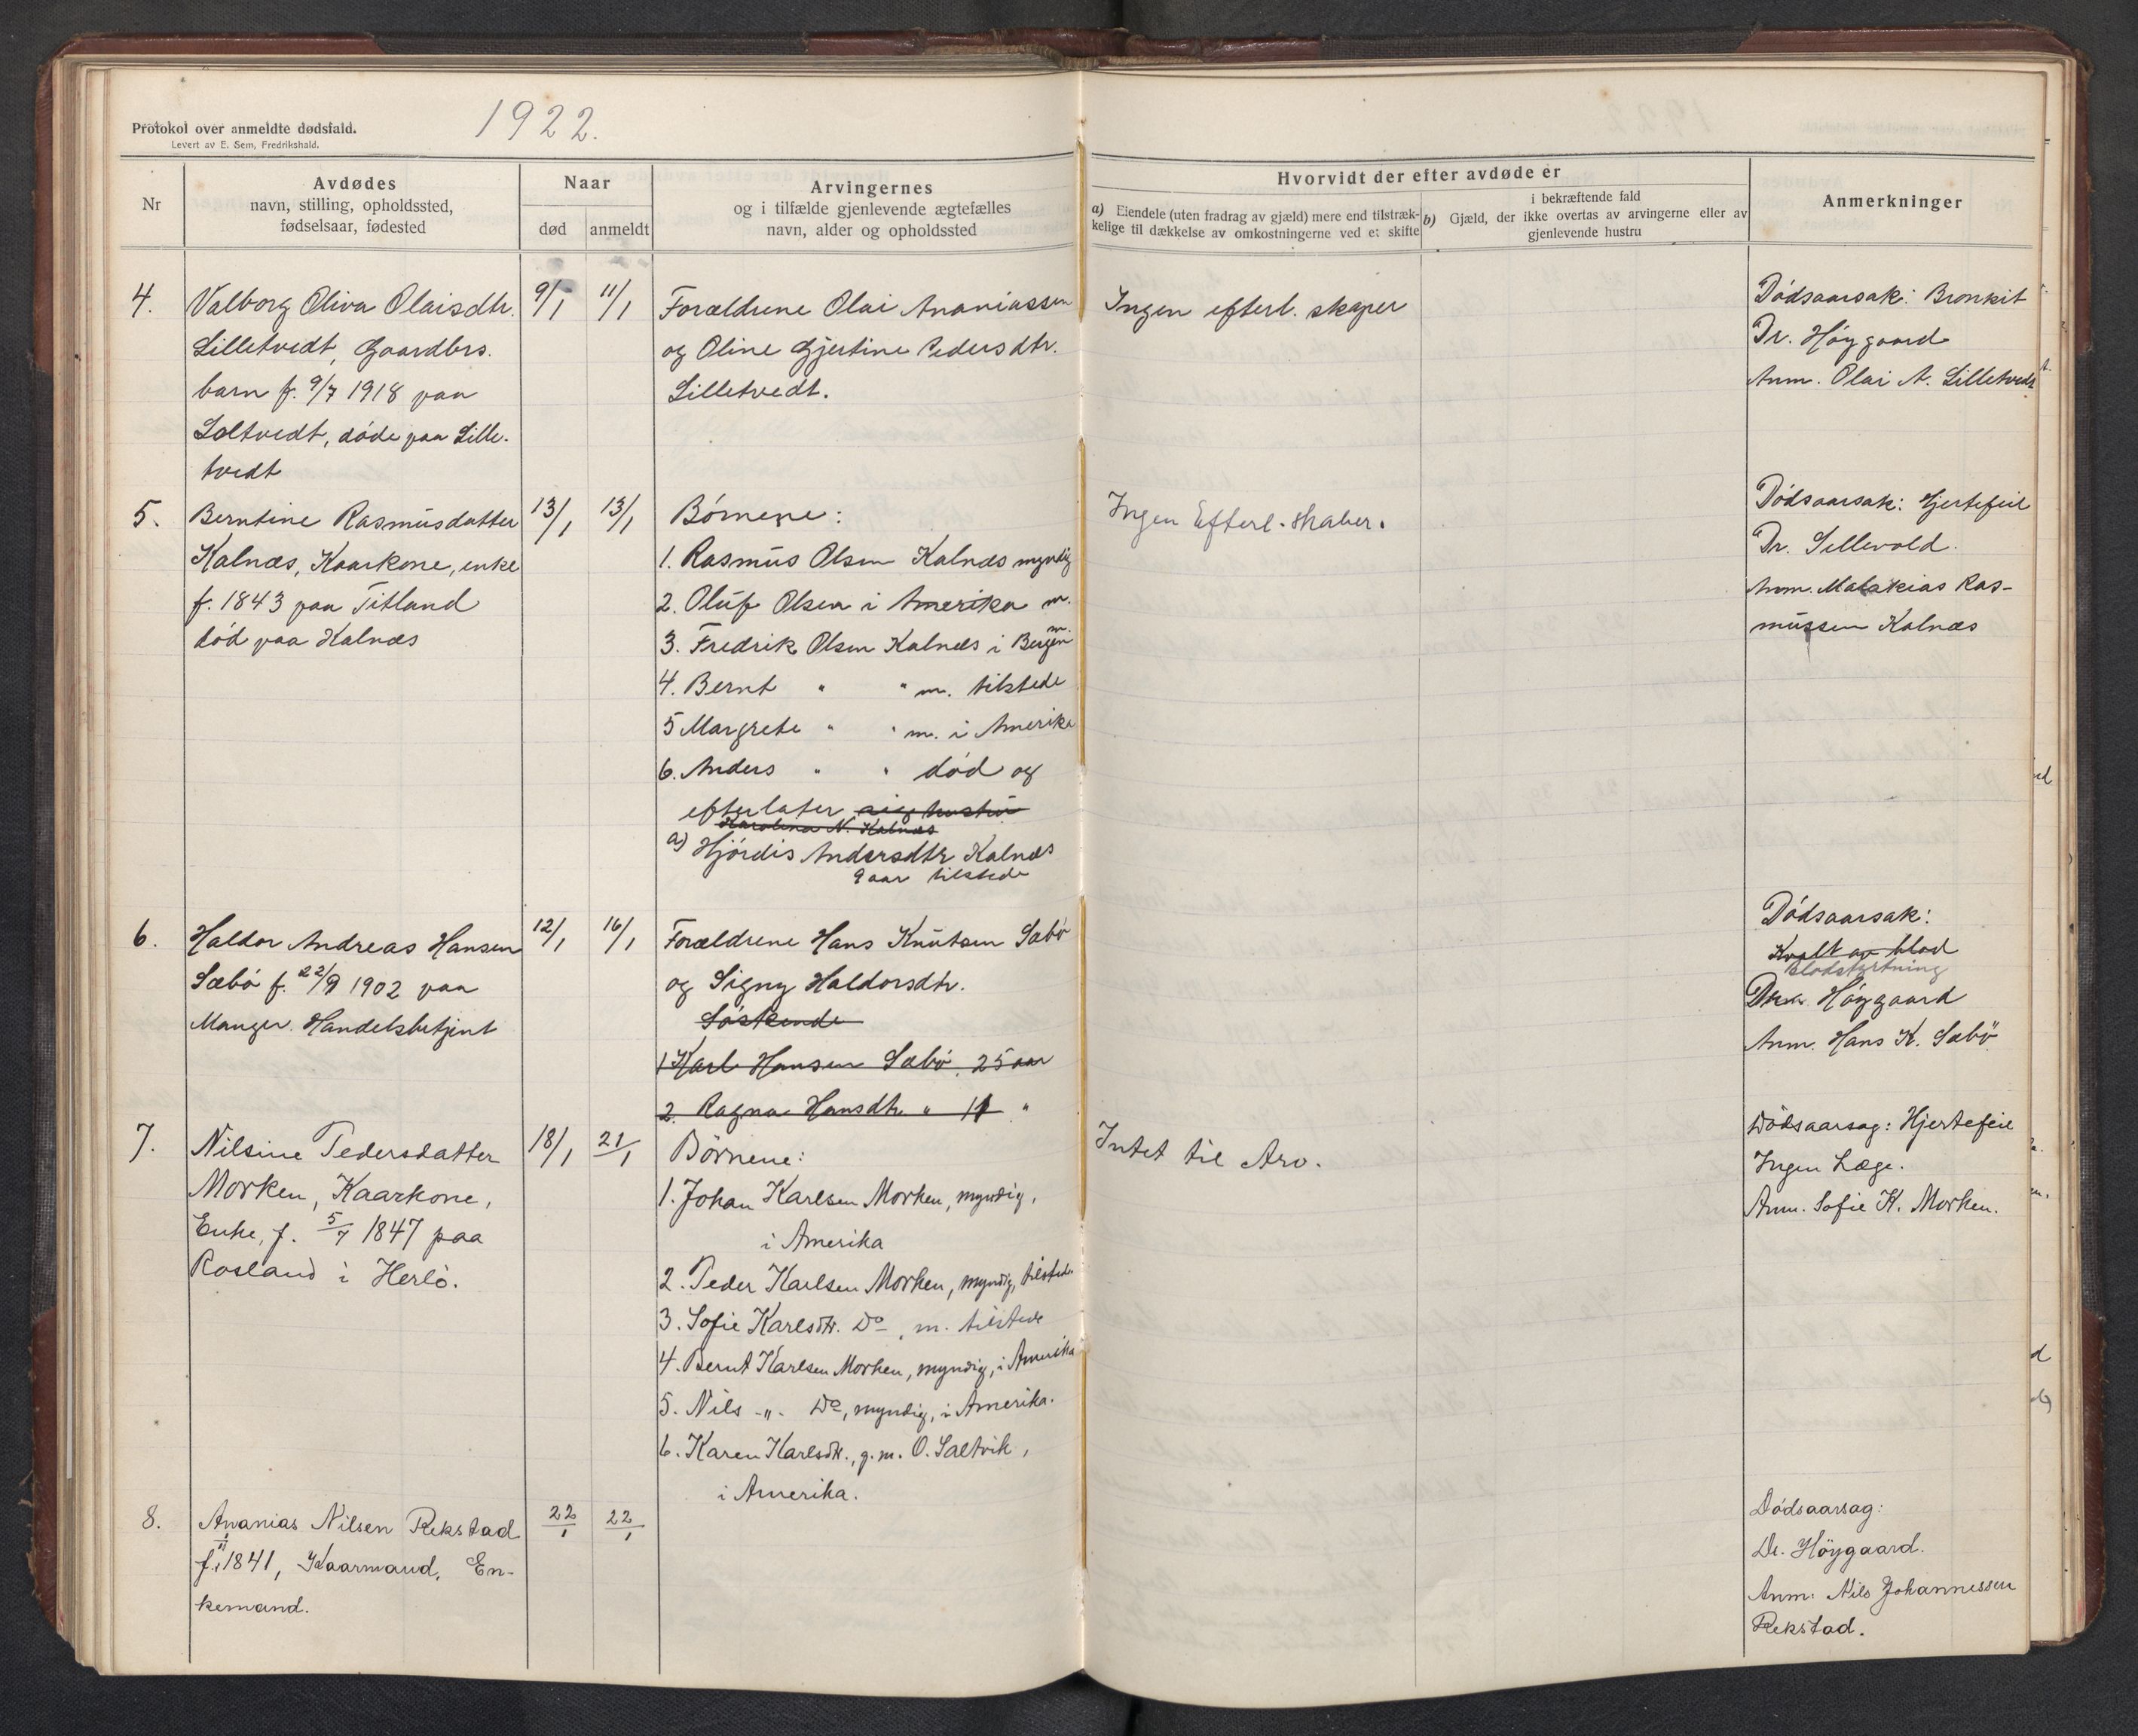 Protokol over anmeldte dødsfald.
Levert av E. Sem, Fredrikshald.
1922.
Nr
Avdødes
navn, stilling, opholdssted,
fødselsaar, fødested
Naar
død
anmeldt
Arvingernes
og i tilfælde gjenlevende ægtefælles
navn, alder og opholdssted
Hvorvidt der efter avdøde er
a) Eiendele (uten fradrag av gjæld) mere end tilstræk-
kelige til dækkelse av omkostningerne ved et skifte
i bekræftende fald
b) Gjæld, der ikke overtas av arvingerne eller av
gjenlevende hustru
Anmerkninger
4.
Valborg Oliva Olaisdtr.
Lilletvedt, Gaardbrs.
barn f. 9/7 1918 paa
Soltvedt, döde paa Lille-
tvedt
9/1
11/1
Forældrene Olai Ananiassen
og Oline Gjertine Pedersdtr.
Lilletvedt.
Ingen efterl. skaper
Dödsaarsak: Bronkit
Dr. Höygaard
Anm. Olai A. Lilletvedt
5.
Berntine Rasmusdatter
Kalnæs, Kaarkone, enke
f. 1843 paa Titland
död paa Kalnæs
13/1
13/1
Börnene:
1. Rasmus Olsen Kalnæs myndig
2. Oluf Olsen i Amerika m.
3. Fredrik Olsen Kalnæs i Bergen m.
4. Bernt " " m. tilstede
5 Margrete " " m. i Amerika
6. Anders " " död og
efterlater sig hustru
Karolina N. Kalnæs
a) Hjördis Andersdtr Kalnæs
9 aar tilstede
Ingen Efterl. skaber.
Dödsaarsak: Hjertefeil
Dr. Sellevold.
Anm. Malakias Ras-
mussen Kalnæs
6.
Haldor Andreas Hansen
Sæbö f. 22/9 1902 paa
Manger. Handelsbetjent
12/1
16/1
Forældrene Hans Knutsen Sæbö
og Signy Haldorsdtr.
Söskende
1 Karl Hansen Sæbö. 25 aar
2. Ragna Hansdtr " 11 "
Dödsaarsak:
Kvalt av blod
Blodstyrtning
Höygaard
Anm. Hans K. Sæbö
7.
Nilsine Pedersdatter
Morken, Kaarkone,
Enke, f. 5/7 1847 paa
Rosland i Herlö.
18/1
21/1
Börnene:
1. Johan Karlsen Morken, myndig,
i Amerika
2. Peder Karlsen Morken, myndig, tilstede
3. Sofie Karlsdtr. Do, m. tilstede
4. Bernt Karlsen Morken, myndig, i Amerika
5. Nils -"- Do, myndig, i Amerika.
6. Karen Karlsdtr., g. m. O. Saltvik,
i Amerika.
Intet til Arv.
Dödsaarsag: Hjertefeil
Ingen Læge.
Anm. Sofie K. Morken.
8.
Ananias Nilsen Rekstad
f. 1841, Kaarmand, En-
kemand.
22/1
22/1
Dödsaarsag:
Dr. Höygaard.
Anm. Nils Johannessen
Rekstad.